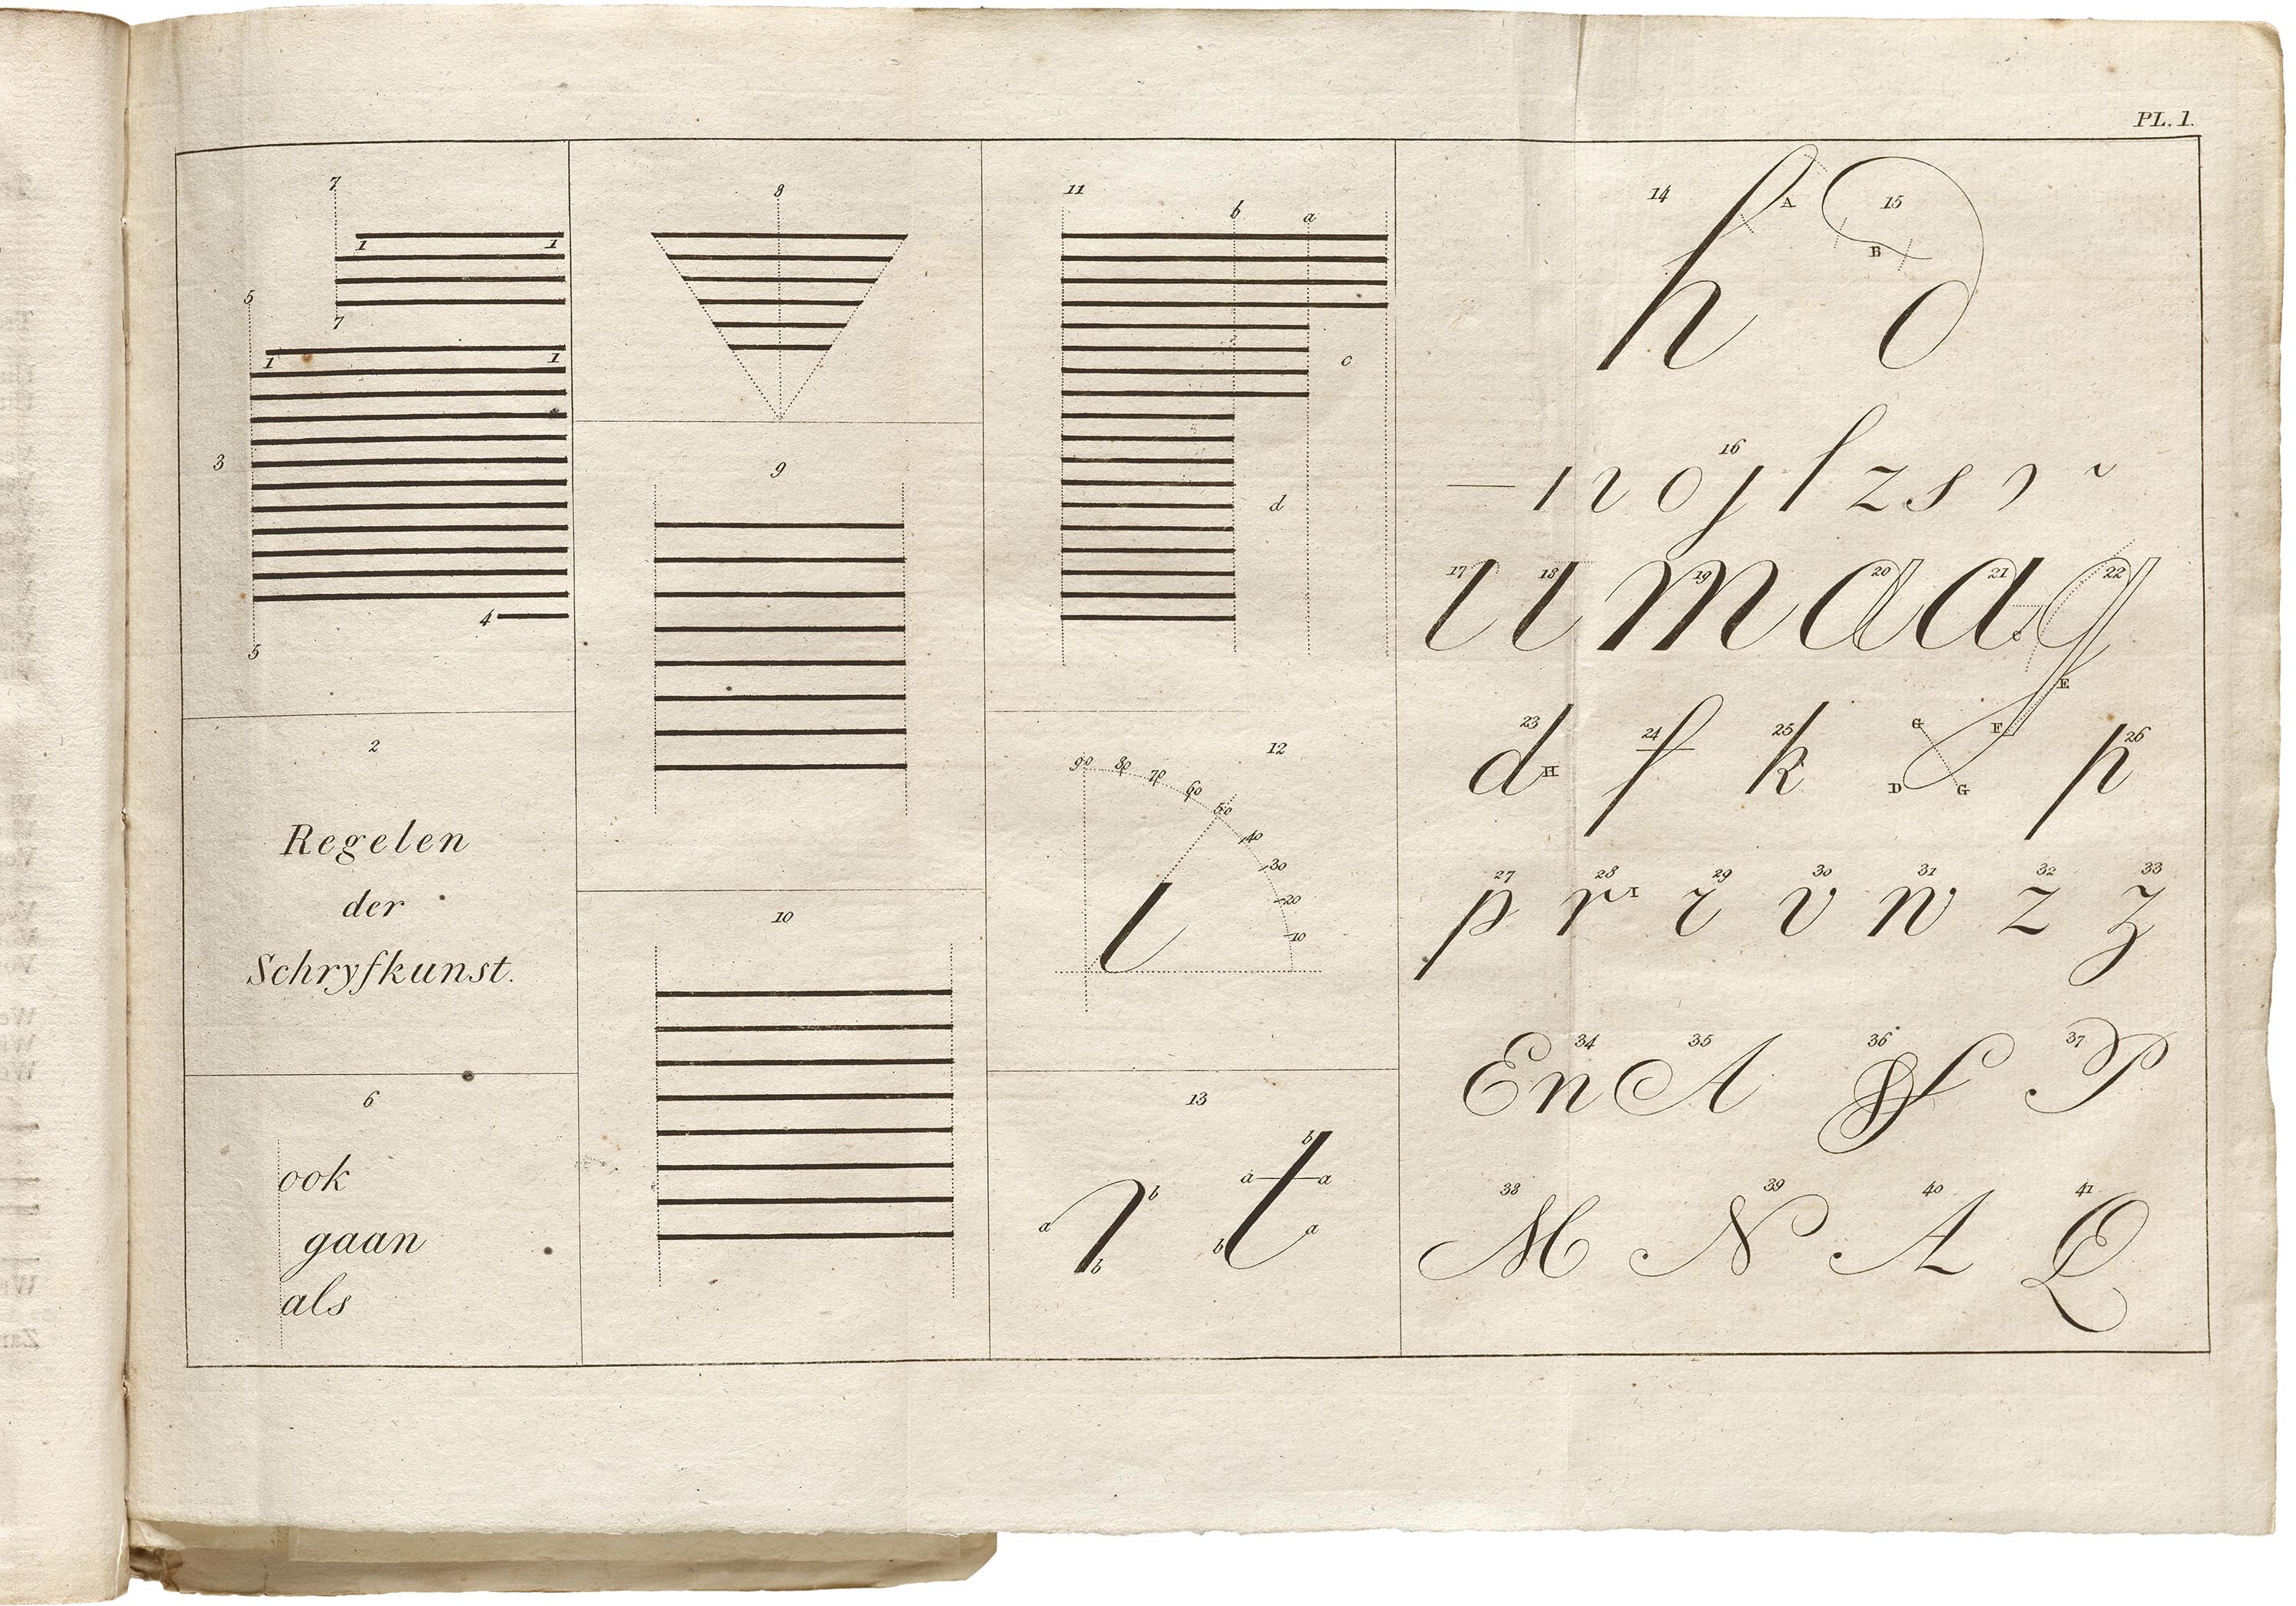 PL. 1.
7
1 1
7
5
1 1
3
4
5
2
Regelen
der
Schryfkunst.
6
ook
gaan
als
8
9
10
11
b a
c
d
12
90 80 70 60 50 40 30 20 10
l
13
a b b
t
b a a b a
14 A 15 B
h d
16
17 18 19 20 21 22
u m a a g
C E F
23 24 25 G 26
d H f k D G p
27 28 29 30 31 32 33
p r I r v w z z
34 35 36 37
En A P
38 39 40 41
M N A Q